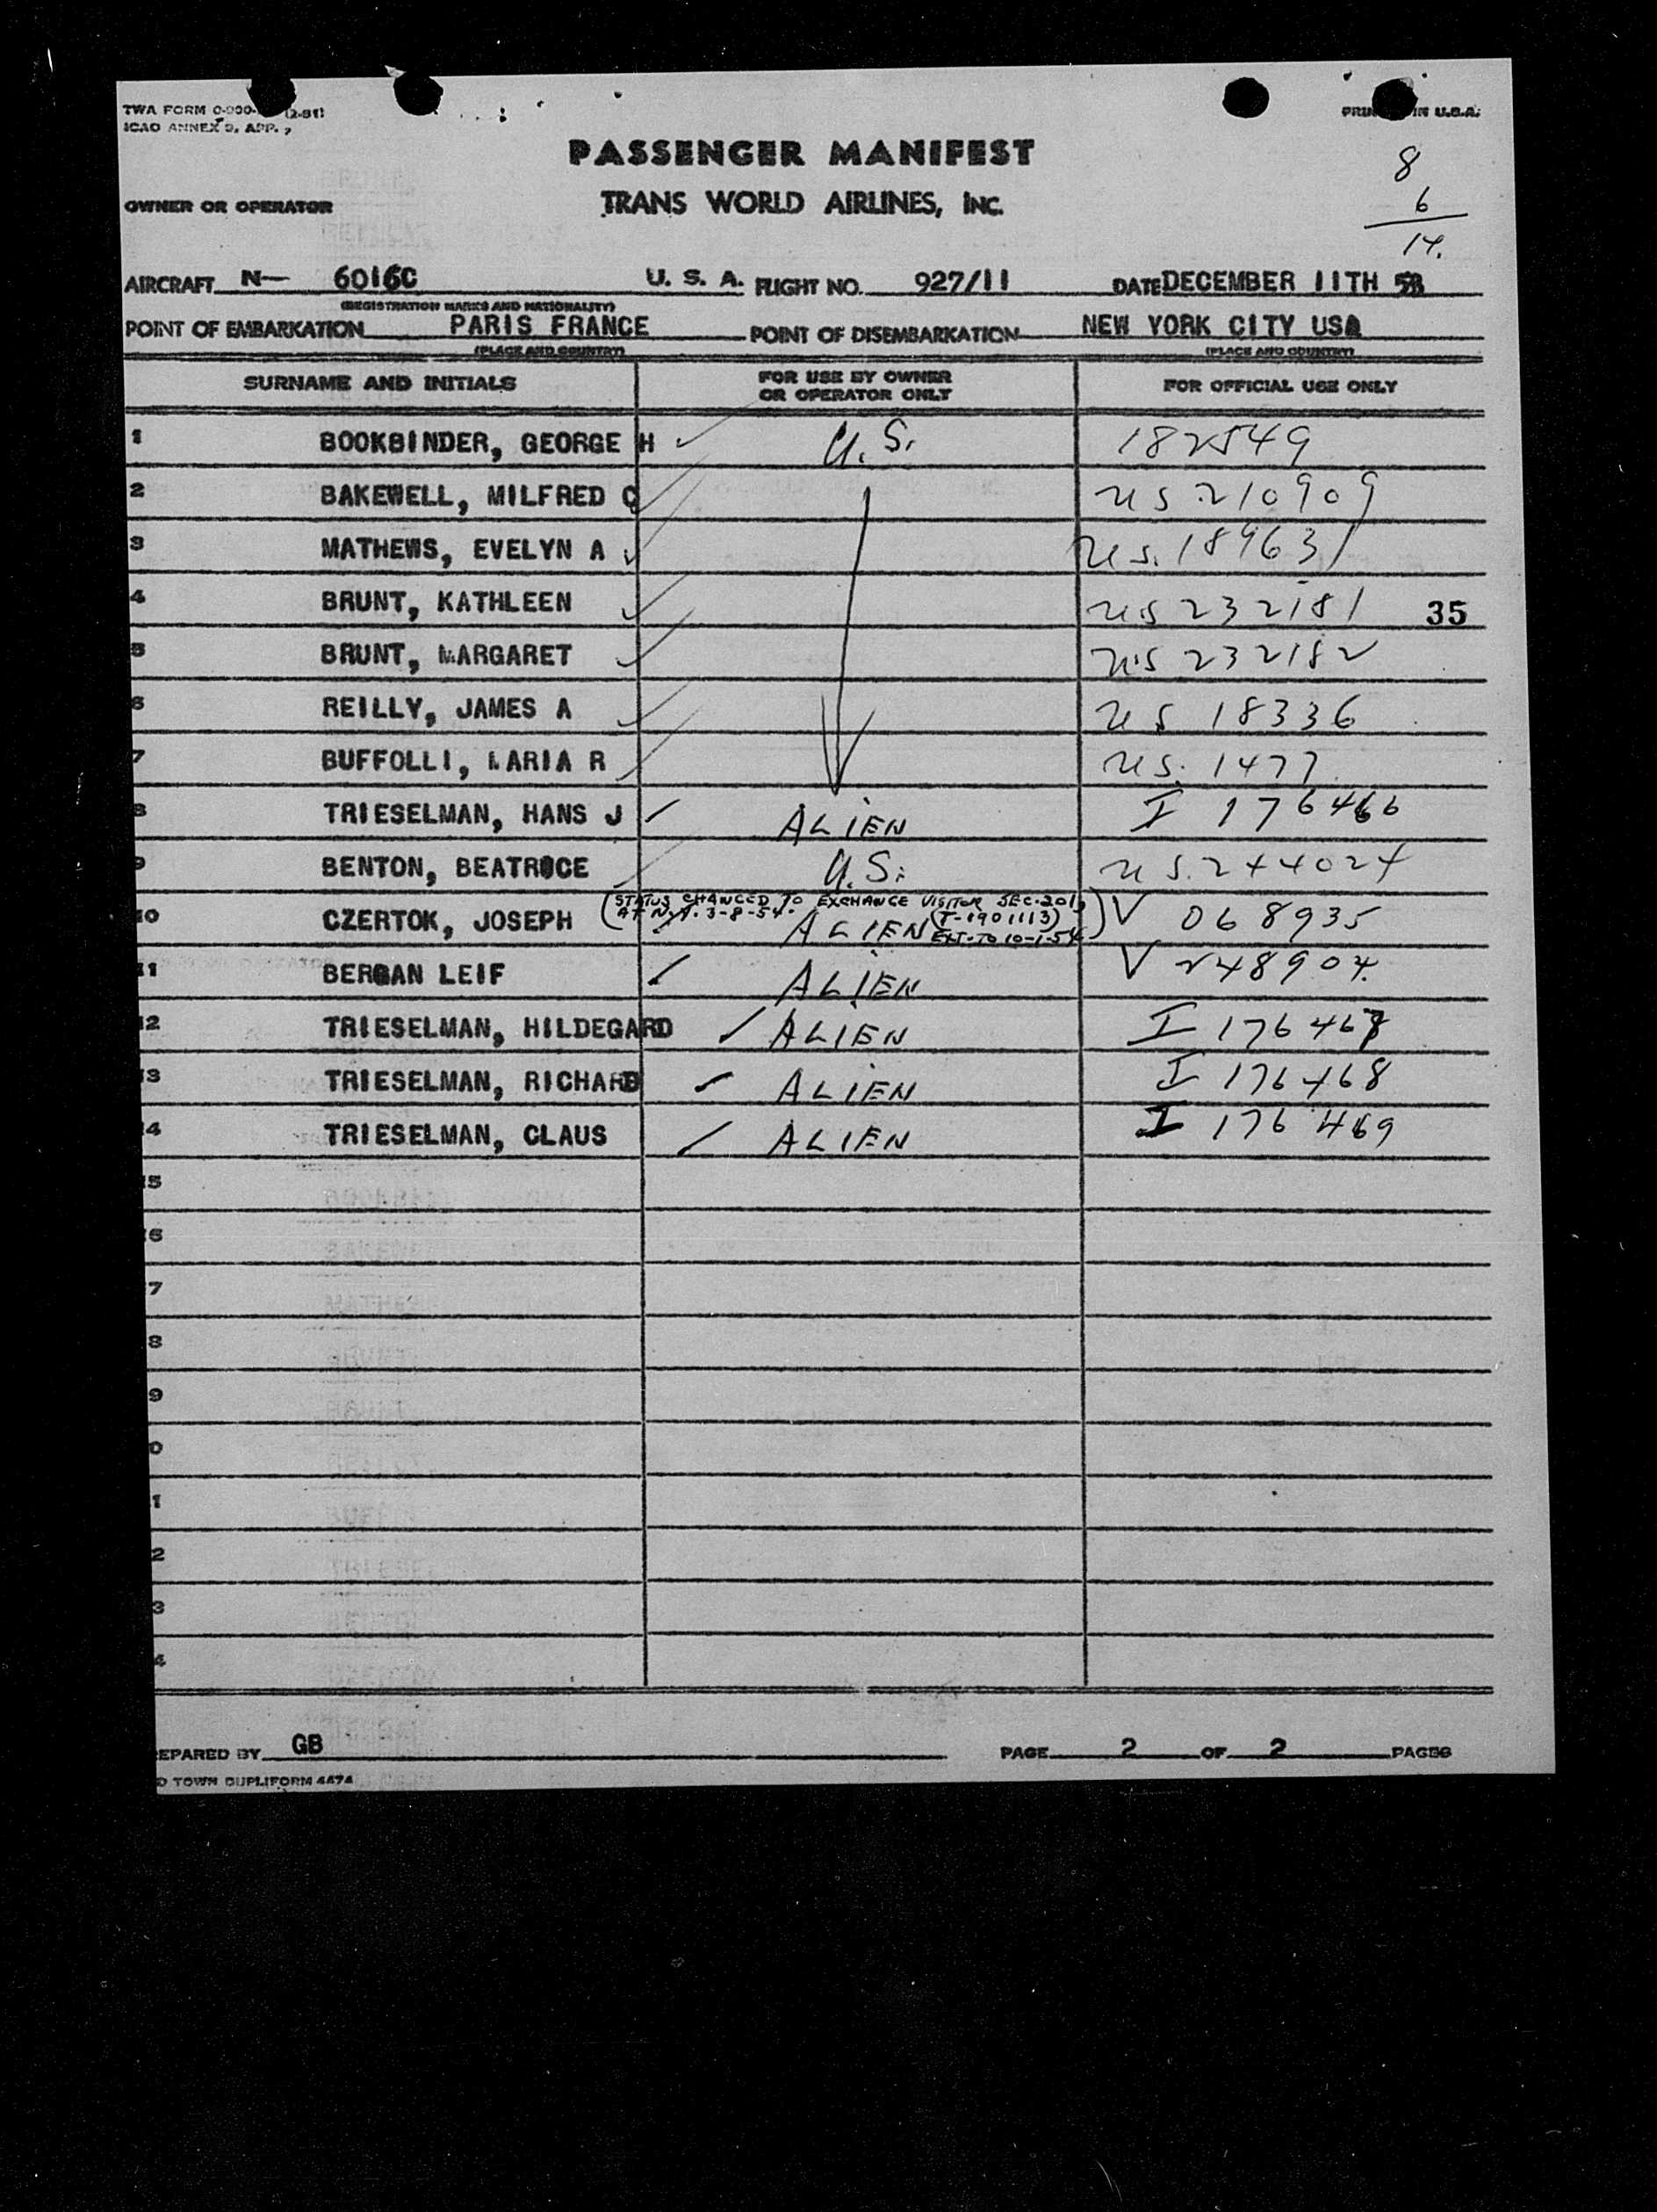 TWA FORM (2-51)
PRINTED IN U.S.A.
ICAO ANNEX 9, APP.
PASSENGER MANIFEST
8
6
14.
OWNER OR OPERATOR TRANS WORLD AIRLINES, INC.
AIRCRAFT N— 6016C U. S. A. FLIGHT NO. 927/11 DATE DECEMBER 11TH 53
(REGISTRATION MARKS AND NATIONALITY)
POINT OF EMBARKATION PARIS FRANCE POINT OF DISEMBARKATION NEW YORK CITY USA
(PLACE AND COUNTRY) (PLACE AND COUNTRY)
SURNAME AND INITIALS FOR USE BY OWNER OR OPERATOR ONLY FOR OFFICIAL USE ONLY
1 BOOKBINDER, GEORGE H U.S. 182549
2 BAKEWELL, MILFRED C US 210909
3 MATHEWS, EVELYN A US. 189631
4 BRUNT, KATHLEEN US 232181 35
5 BRUNT, MARGARET US 232182
6 REILLY, JAMES A US 18336
7 BUFFOLLI, MARIA R US. 1477
8 TRIESELMAN, HANS J ALIEN I 176466
9 BENTON, BEATRICE U.S. US. 244024
(STATUS CHANGED TO EXCHANGE VISITOR SEC. 201,
AT N.Y. 3-8-54. (T-1901113)
10 CZERTOK, JOSEPH ALIEN EXT. TO 10-1-54) V 068935
11 BERGAN LEIF ALIEN V 248904
12 TRIESELMAN, HILDEGARD ALIEN I 176467
13 TRIESELMAN, RICHARD ALIEN I 176468
14 TRIESELMAN, CLAUS ALIEN I 176469
15
6
7
8
9
0
1
2
3
4
EPARED BY GB PAGE 2 OF 2 PAGES
D TOWN DUPLIFORM 4474